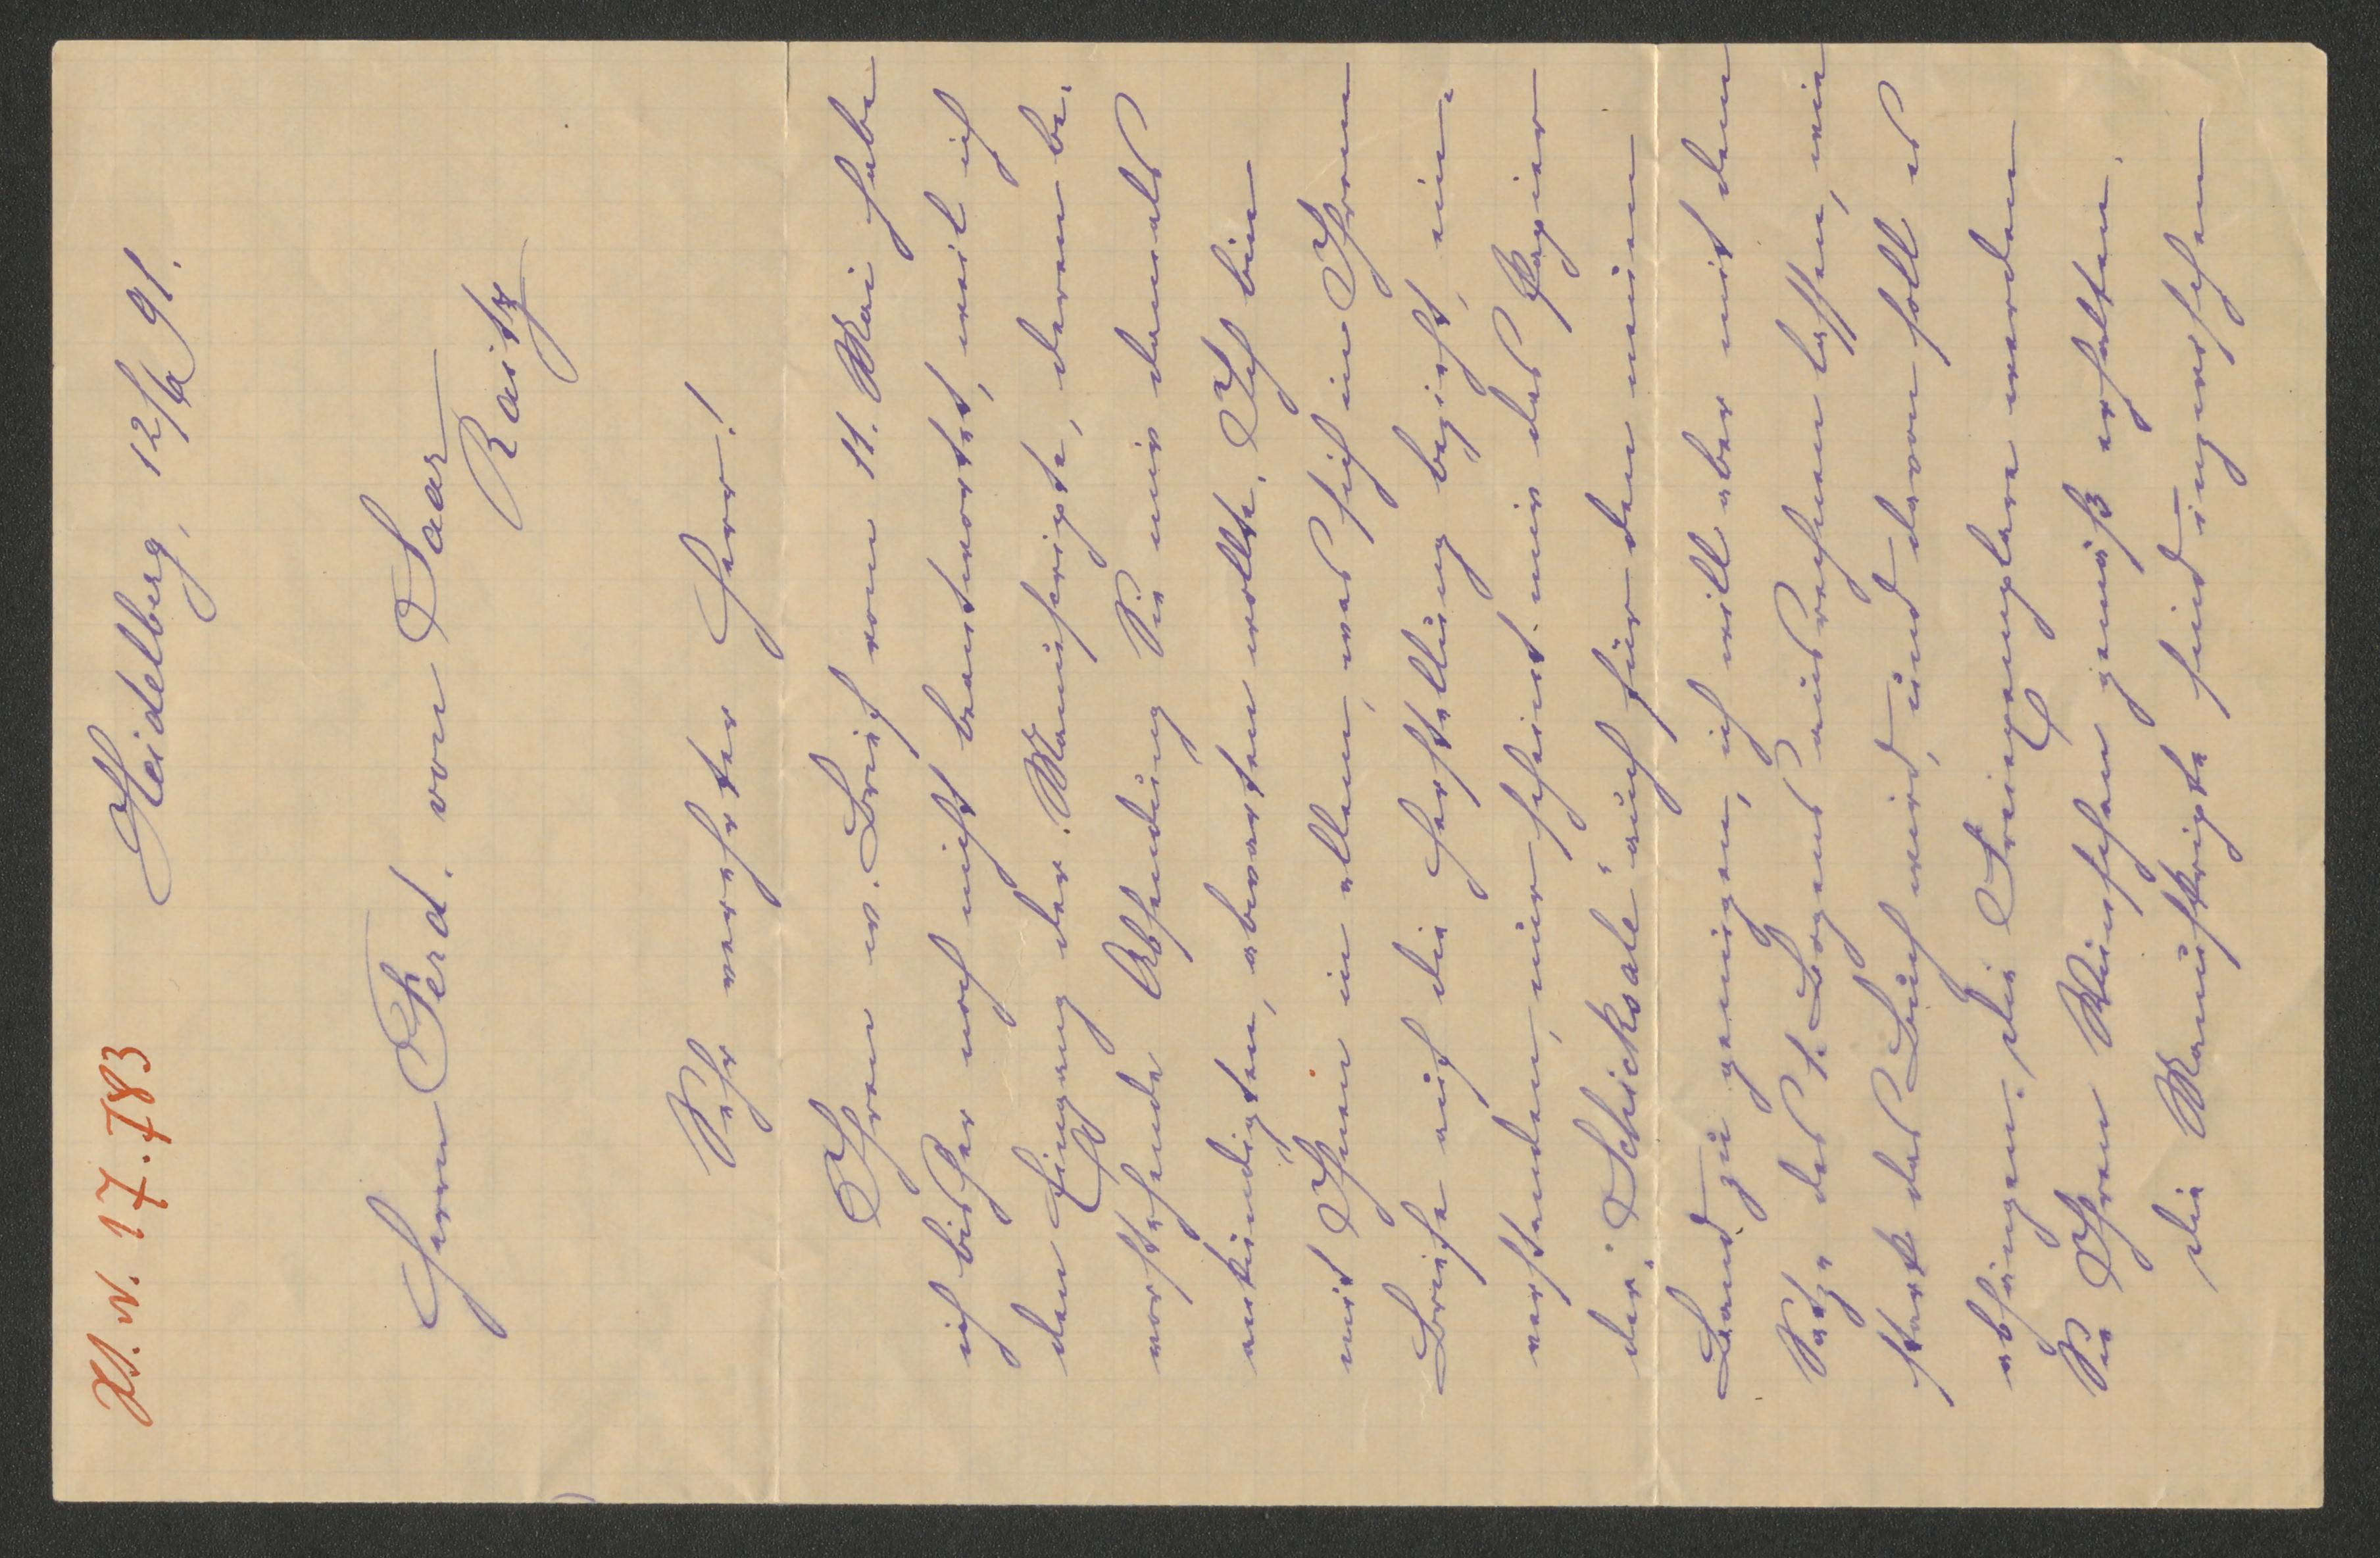 H.N. 17.783
Heidelberg, 12/6 91.
Herrn Ferd. von Saar
Raitz
Sehr verehrter Herr!
Ihren w. Brief vom 11. Mai habe
ich bisher noch nicht beantwortet, weil ich
den Eingang der Manuscripte, deren be-
vorstehende Absendung Sie mir damals
ankündigten, abwarten wollte. Ich bin
mit Ihnen in allem, was sich in Ihrem
Briefe auf die Herstellung bezieht, ein-
verstanden, nur scheint mir das Papier
der "Schicksale" auch für den neuen
Band zu genügen, ich will aber mit dem
Satze des 1. Bogens ausrechnen lassen, wie
stark das Buch wird, und davon soll es
abhängen. Die Freiexemplare werden
Sie Ihren Wünschen gemäß erhalten.
Die Manuskripte sind inzwischen